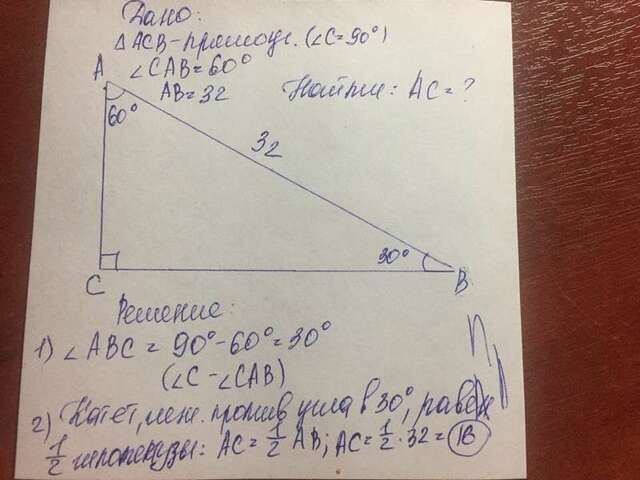 Дано:
△ACB-прямоуг. (∠C=90°)
∠CAB=60°
AB=32
Найти: AC=?
A
60°
32
30°
C
B
Решение:
1) ∠ABC = 90°-60°=30°
(∠C-∠CAB)
2) Катет, леж. против угла в 30°, равен
1/2 гипотенузы: AC=1/2 AB; AC=1/2·32=16